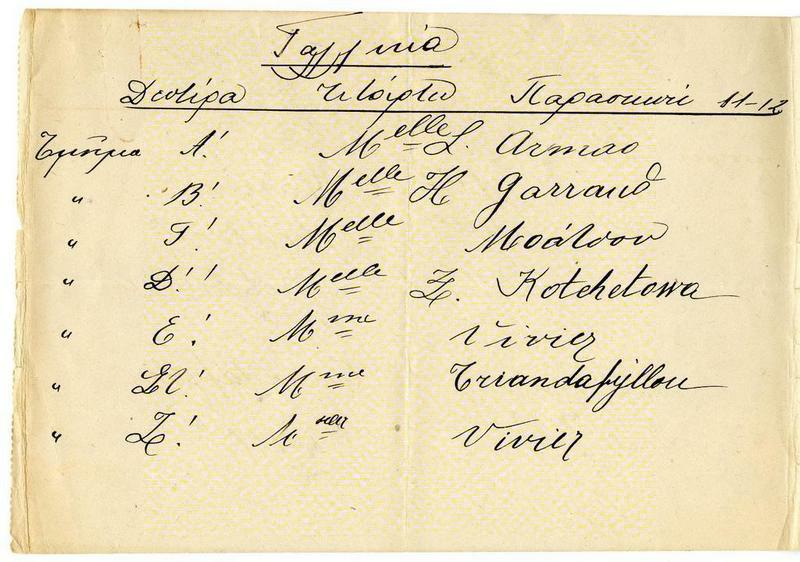 Γαλλικά
Δευτέρα Τετάρτη Παρασκευή 11-12
Τμῆμα Α! Melle L. Armao
〃 Β! Melle H Garraud
〃 Γ! Melle Μοάτσου
〃 Δ! Melle Z. Kotchetowa
〃 Ε! Mme Vivier
〃 ΣΤ! Mme Triandafyllou
〃 Ζ! Vivier